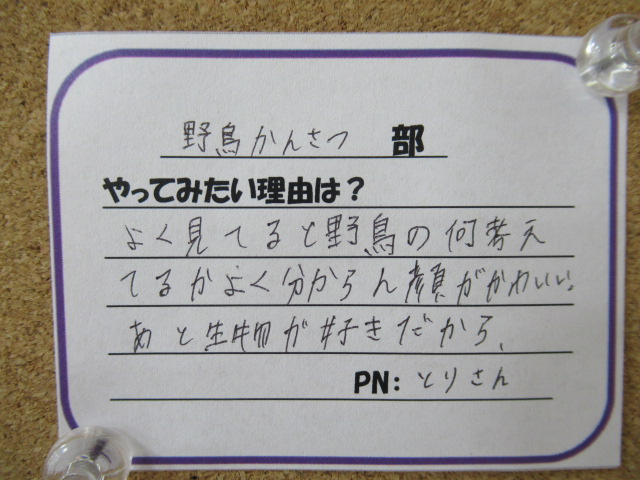 野鳥かんさつ 部
やってみたい理由は？
よく見てると野鳥の何考え
てるかよく分からん顔がかわいい。
あと生物が好きだから、
PN: とりさん